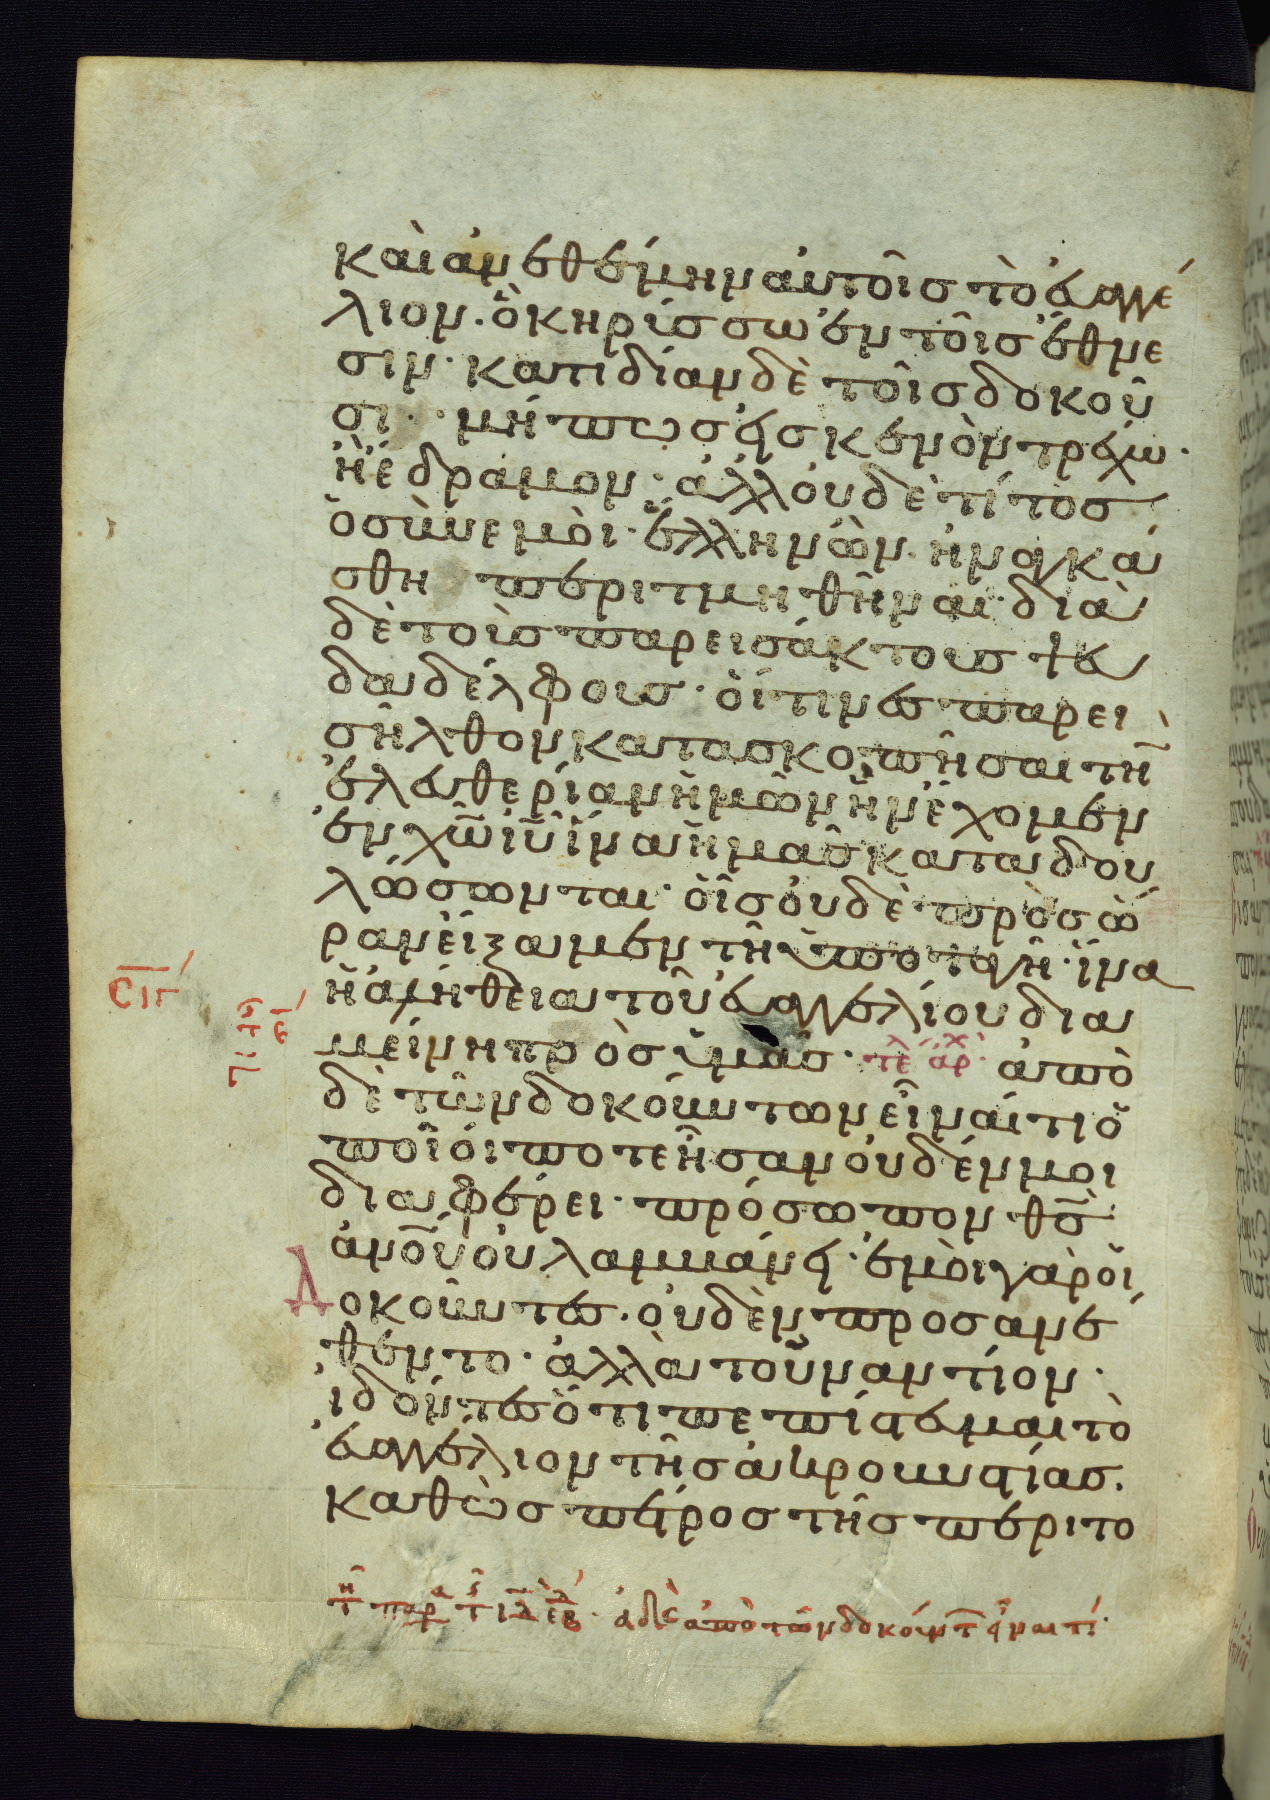 καὶ ἀνεθέμην αὐτοῖς τὸ εὐαγγέ
λιον· ὃ κηρύσσω ἐν τοῖς ἔθνε
σιν· κατιδίαν δὲ τοῖς δοκοῦ
σι· μήπως εἰς κενὸν τρέχω·
ἢ ἔδραμον· ἀλλ οὐδὲ τίτος
ὁ σὺν εμοὶ ἕλλην ὢν ἠναγκά
σθη περιτμηθῆναι· διὰ
δὲ τοὺς παρεισάκτους ψευ
δαδέλφους· οἵτινες παρει
σῆλθον κατασκοπῆσαι τὴν
ἐλευθερίαν ἡμῶν ἣν ἔχομεν
ἐν χω ιυ ἵνα ἡμᾶς καταδου
λώσωνται· οἷς οὐδὲ πρὸς ὥ
ραν εἴξαμεν τῆ ὑποταγῆ· ἵνα
ἡ ἀλήθεια τοῦ εὐαγγελίου δια
μείνη πρὸς ὑμᾶς· τε αρχ ἀπὸ
δὲ τῶν δοκούντων εἶναί τι ὁ
ποῖοί ποτε ἦσαν οὐδέν μοι
διαφέρει· πρόσωπον θς
ανου οὐ λαμβάνει· ἐμοὶ γὰρ οἱ
Δοκοῦντες· οὐδὲν προσανε
θεντο· ἀλλὰ τοὐναντίον·
ἰδόντες ὅτι πεπίστευμαι τὸ
εὐαγγέλιον τῆς ἀκροβυστίας·
καθὼς πέτρος τῆς περιτο
σιγ
ἀδελ ἀπὸ τῶν δοκούντ εἶναι τι·